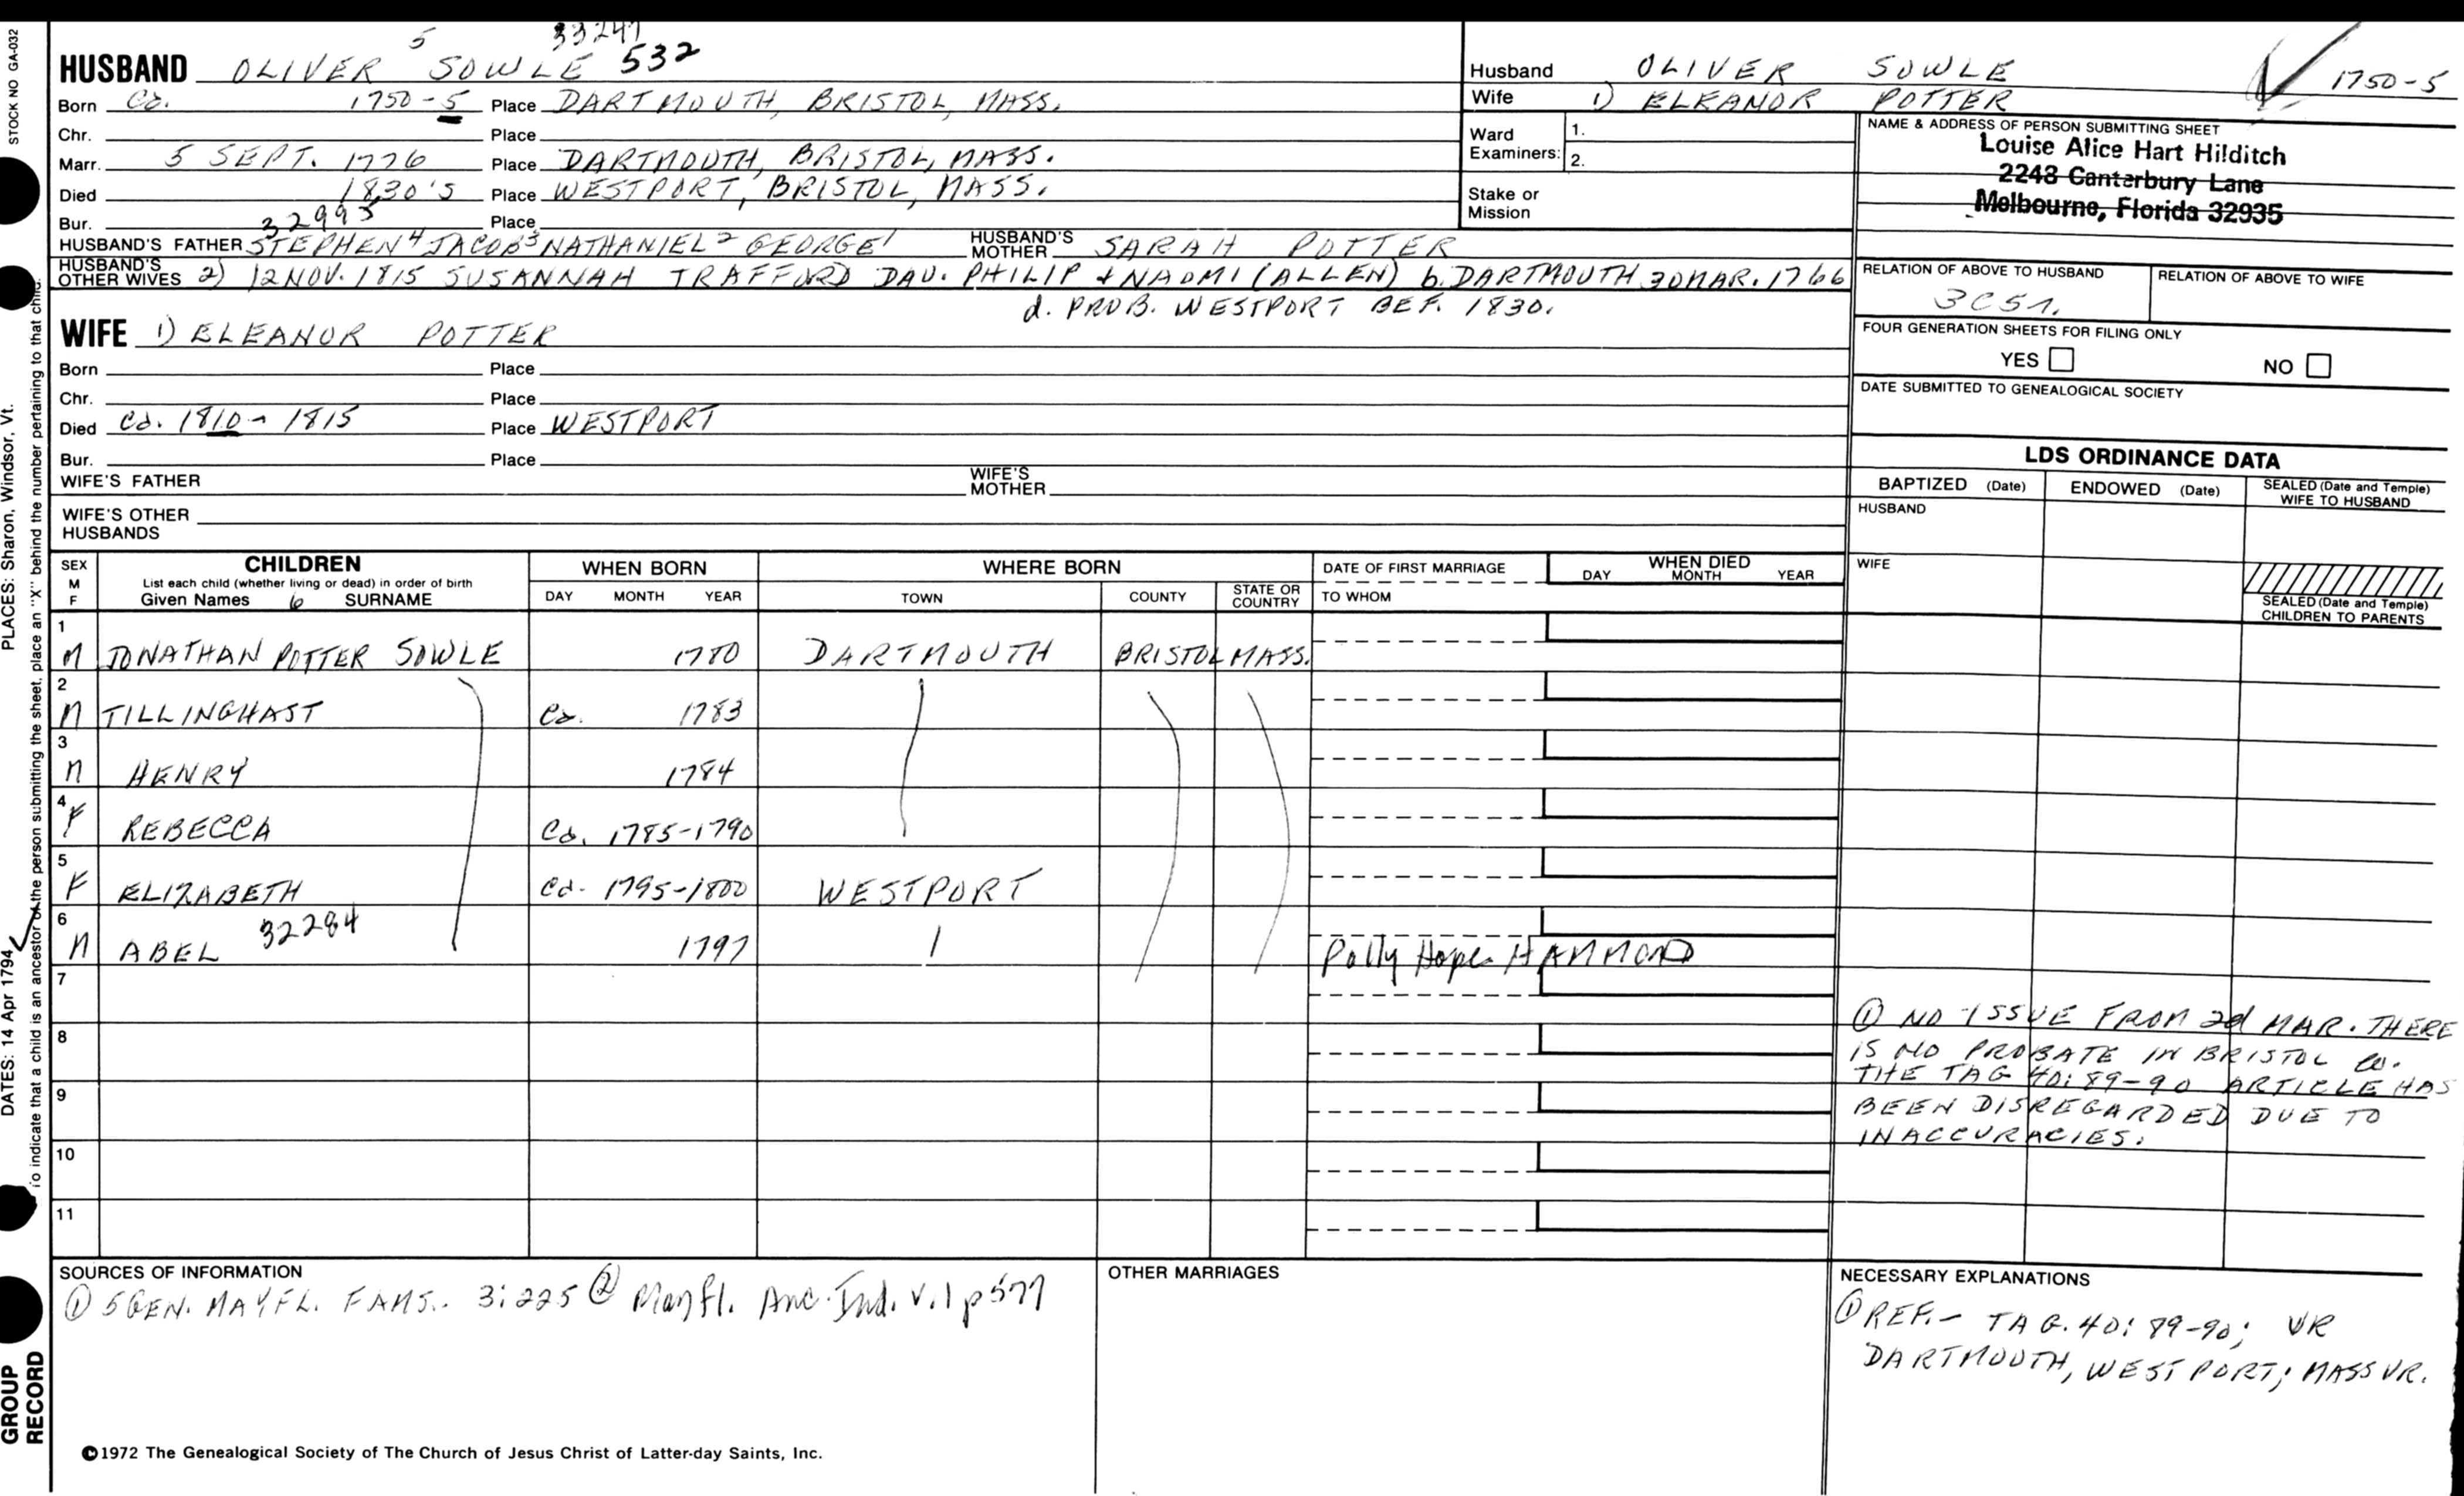 STOCK NO GA-032
PLACES: Sharon, Windsor, Vt.
DATES: 14 Apr 1794
To indicate that a child is an ancestor of the person submitting the sheet, place an "X" behind the number pertaining to that child.
GROUP RECORD
33247
HUSBAND OLIVER 5 SOWLE 532
Born Ca. 1750-5 Place DARTMOUTH, BRISTOL, MASS.
Chr. Place
Marr. 5 SEPT. 1776 Place DARTMOUTH, BRISTOL, MASS.
Died 1830'S Place WESTPORT, BRISTOL, MASS.
Bur. Place
32995
HUSBAND'S FATHER STEPHEN 4 JACOB 3 NATHANIEL 2 GEORGE 1 HUSBAND'S MOTHER SARAH POTTER
HUSBAND'S OTHER WIVES 2) 12 NOV. 1815 SUSANNAH TRAFFORD DAU. PHILIP & NAOMI (ALLEN) b. DARTMOUTH 30 MAR. 1766
d. PROB. WESTPORT BEF. 1830.
WIFE 1) ELEANOR POTTER
Born Place
Chr. Place
Died Ca. 1810 - 1815 Place WESTPORT
Bur. Place
WIFE'S FATHER WIFE'S MOTHER
WIFE'S OTHER HUSBANDS
Husband OLIVER SOWLE 1750-5
Wife 1) ELEANOR POTTER
Ward Examiners: 1.
2.
Stake or Mission
NAME & ADDRESS OF PERSON SUBMITTING SHEET
Louise Alice Hart Hilditch
2248 Canterbury Lane
Melbourne, Florida 32935
RELATION OF ABOVE TO HUSBAND RELATION OF ABOVE TO WIFE
FOUR GENERATION SHEETS FOR FILING ONLY
YES NO
DATE SUBMITTED TO GENEALOGICAL SOCIETY
LDS ORDINANCE DATA
BAPTIZED (Date) ENDOWED (Date) SEALED (Date and Temple) WIFE TO HUSBAND
HUSBAND
WIFE
SEALED (Date and Temple) CHILDREN TO PARENTS
SEX M F CHILDREN WHEN BORN WHERE BORN DATE OF FIRST MARRIAGE WHEN DIED
List each child (whether living or dead) in order of birth
Given Names 6 SURNAME DAY MONTH YEAR TOWN COUNTY STATE OR COUNTRY TO WHOM DAY MONTH YEAR
1 M JONATHAN POTTER SOWLE 1780 DARTMOUTH BRISTOL MASS.
2 M TILLINGHAST Ca. 1783
3 M HENRY 1784
4 F REBECCA Ca. 1785-1790
5 F ELIZABETH Ca. 1795-1800 WESTPORT
6 M ABEL 32284 1797 Polly Hope HAMMOND
7
8
9
10
11
① NO ISSUE FROM 2d MAR. THERE
IS NO PROBATE IN BRISTOL Co.
THE TAG 40:89-90 ARTICLE HAS
BEEN DISREGARDED DUE TO
INACCURACIES.
SOURCES OF INFORMATION
① 5 GEN. MAYFL. FAMS. 3:225 ② Mayfl. Anc. Ind. v.1 p577
OTHER MARRIAGES
NECESSARY EXPLANATIONS
① REF. - TAG. 40:89-90; VR
DARTMOUTH, WESTPORT; MASS VR.
©1972 The Genealogical Society of The Church of Jesus Christ of Latter-day Saints, Inc.